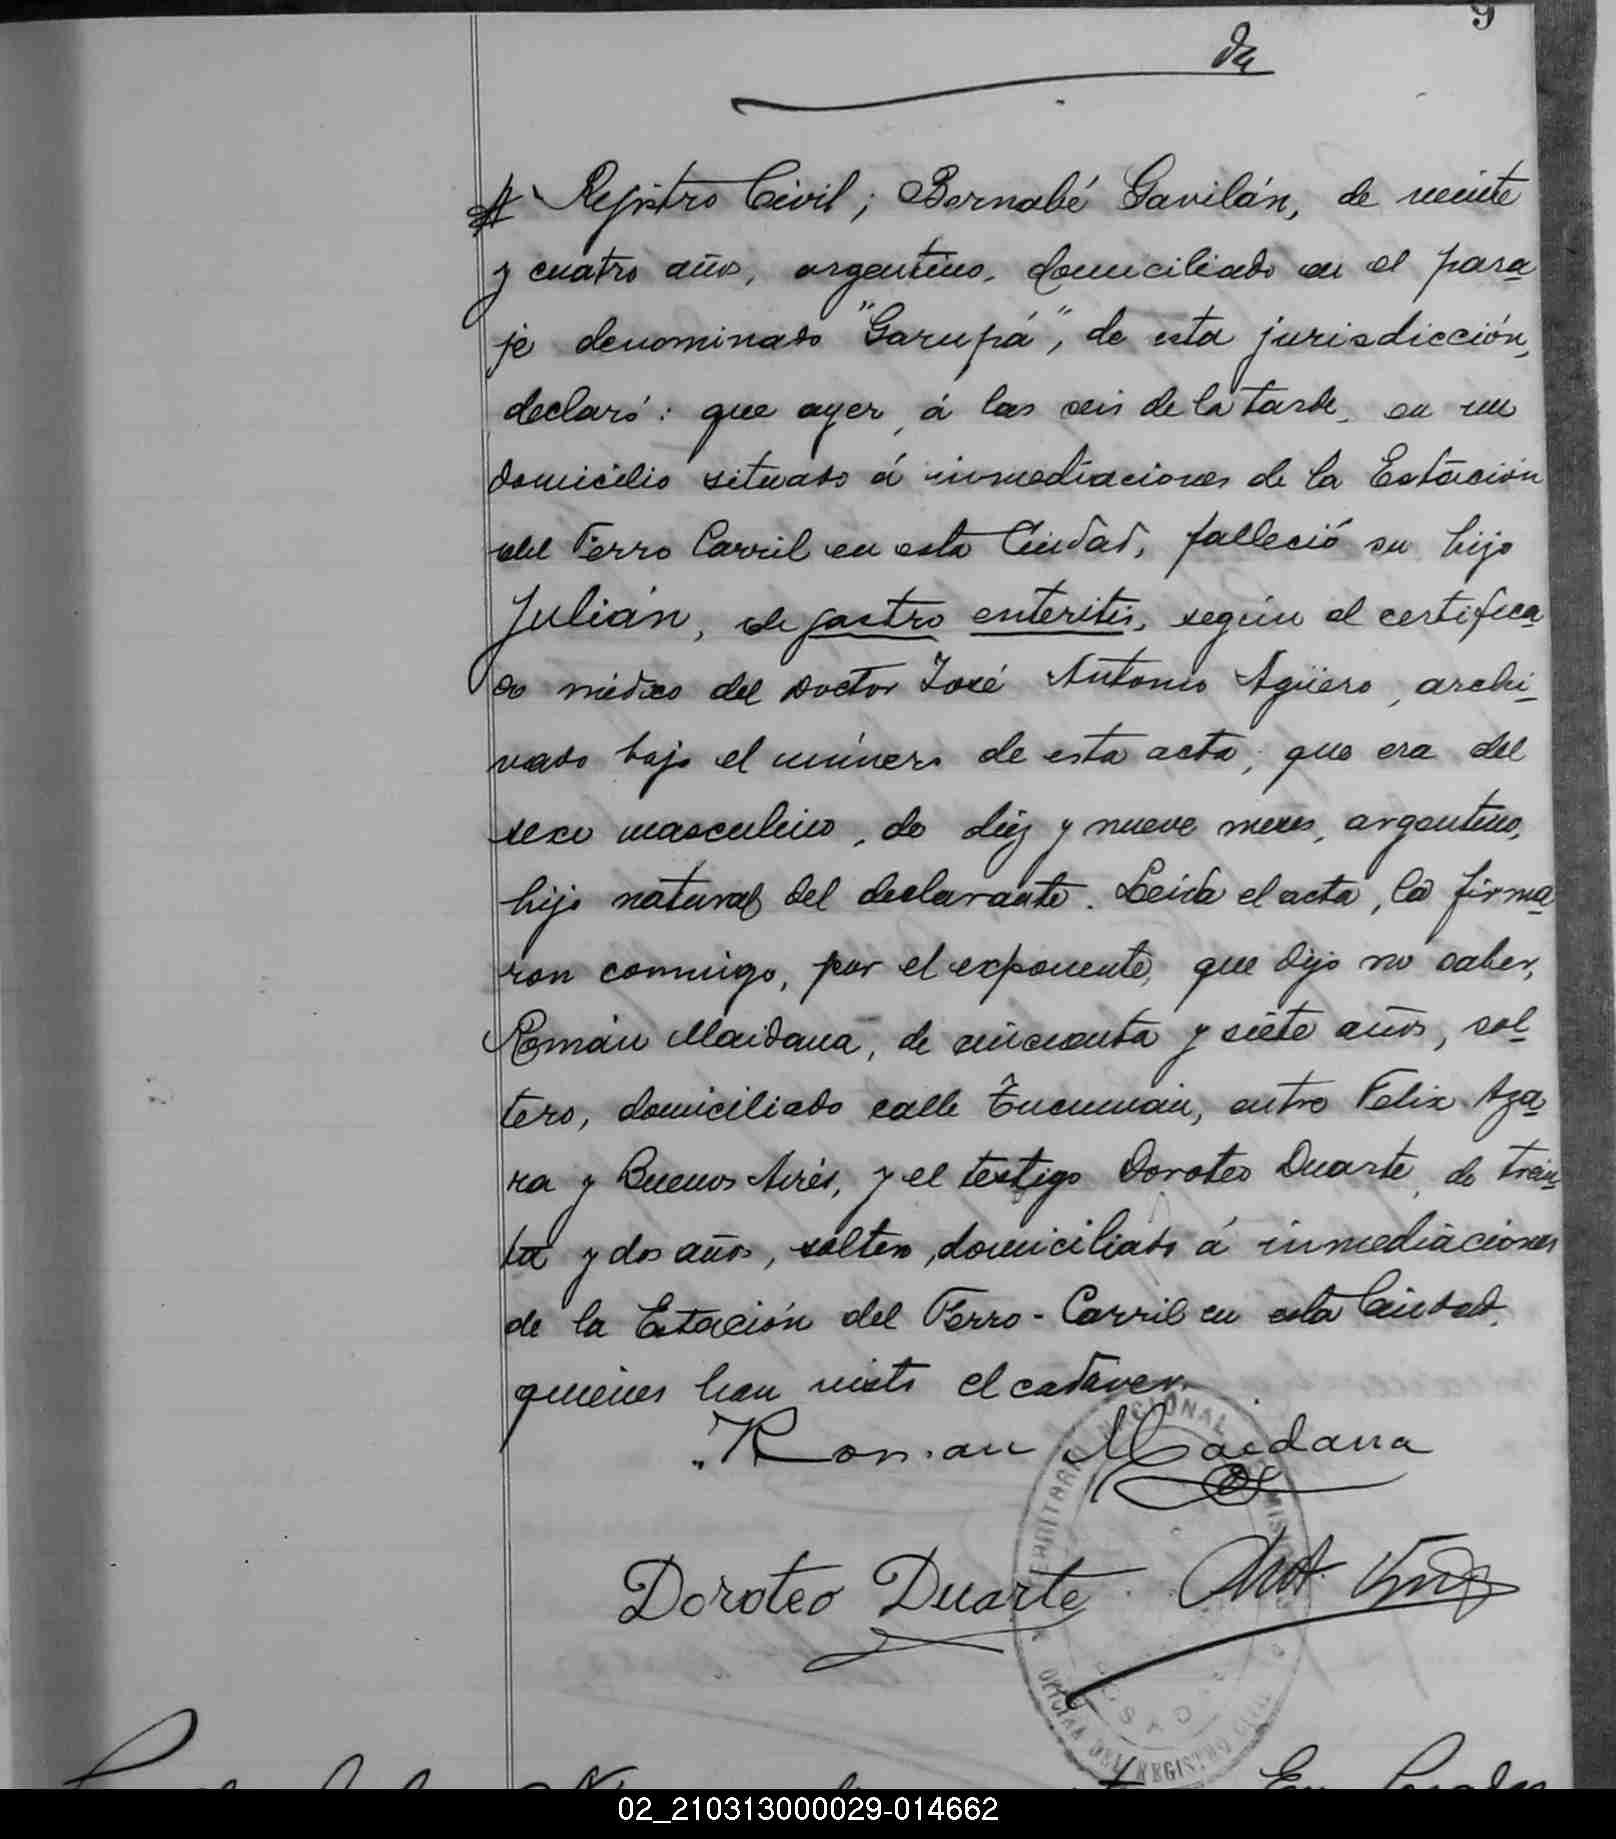 9
Registro Civil; Bernabé Gavilán, de veinte
y cuatro años, argentino, domiciliado en el para
je denominado "Garupá", de esta jurisdicción,
declaró: que ayer, á las seis de la tarde, en un
domicilio situado á inmediaciones de la Estación
del Ferro Carril en esta Ciudad, falleció su hijo
Julián, de gastro enteritis, según el certifica
do médico del Doctor José Antonio Agüero, archi-
vado bajo el número de esta acta; que era del
sexo masculino, de diez y nueve meses, argentino,
hijo natural del declarante. Leida el acta, la firma
ron conmigo, por el exponente, que dijo no saber,
Román Maidana, de cincuenta y siete años, sol
tero, domiciliado calle Tucumán, entre Felix Aza
ra y Buenos Aires, y el testigo Doroteo Duarte, de trein
ta y dos años, soltero, domiciliado á inmediaciones
de la Estación del Ferro-Carril en esta Ciudad,
quienes han visto el cadaver.
Roman Maidana
Doroteo Duarte
TERRITORIO NACIONAL MISIONES
POSADAS
OFICINA DEL REGISTRO CIVIL
En Posadas
02_210313000029-014662